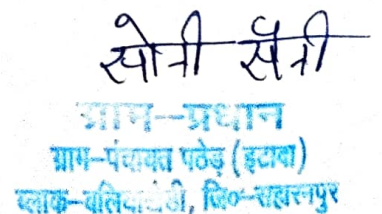 ग्राम-प्रधान
ग्राम-पंचायत पठेड़ (इटावा)
ब्लाक-बलियाखेड़ी, जि०-सहारनपुर